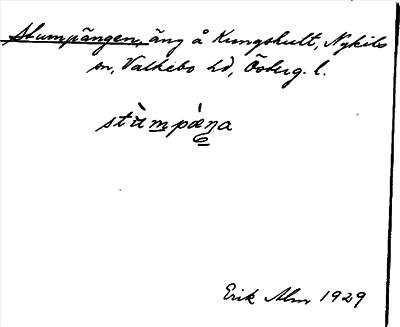 Stumpängen, äng å Kungshult, Nykils
sn, Valkebo hd, Österg. l.
stùmpǽŋa
Erik Alm 1929